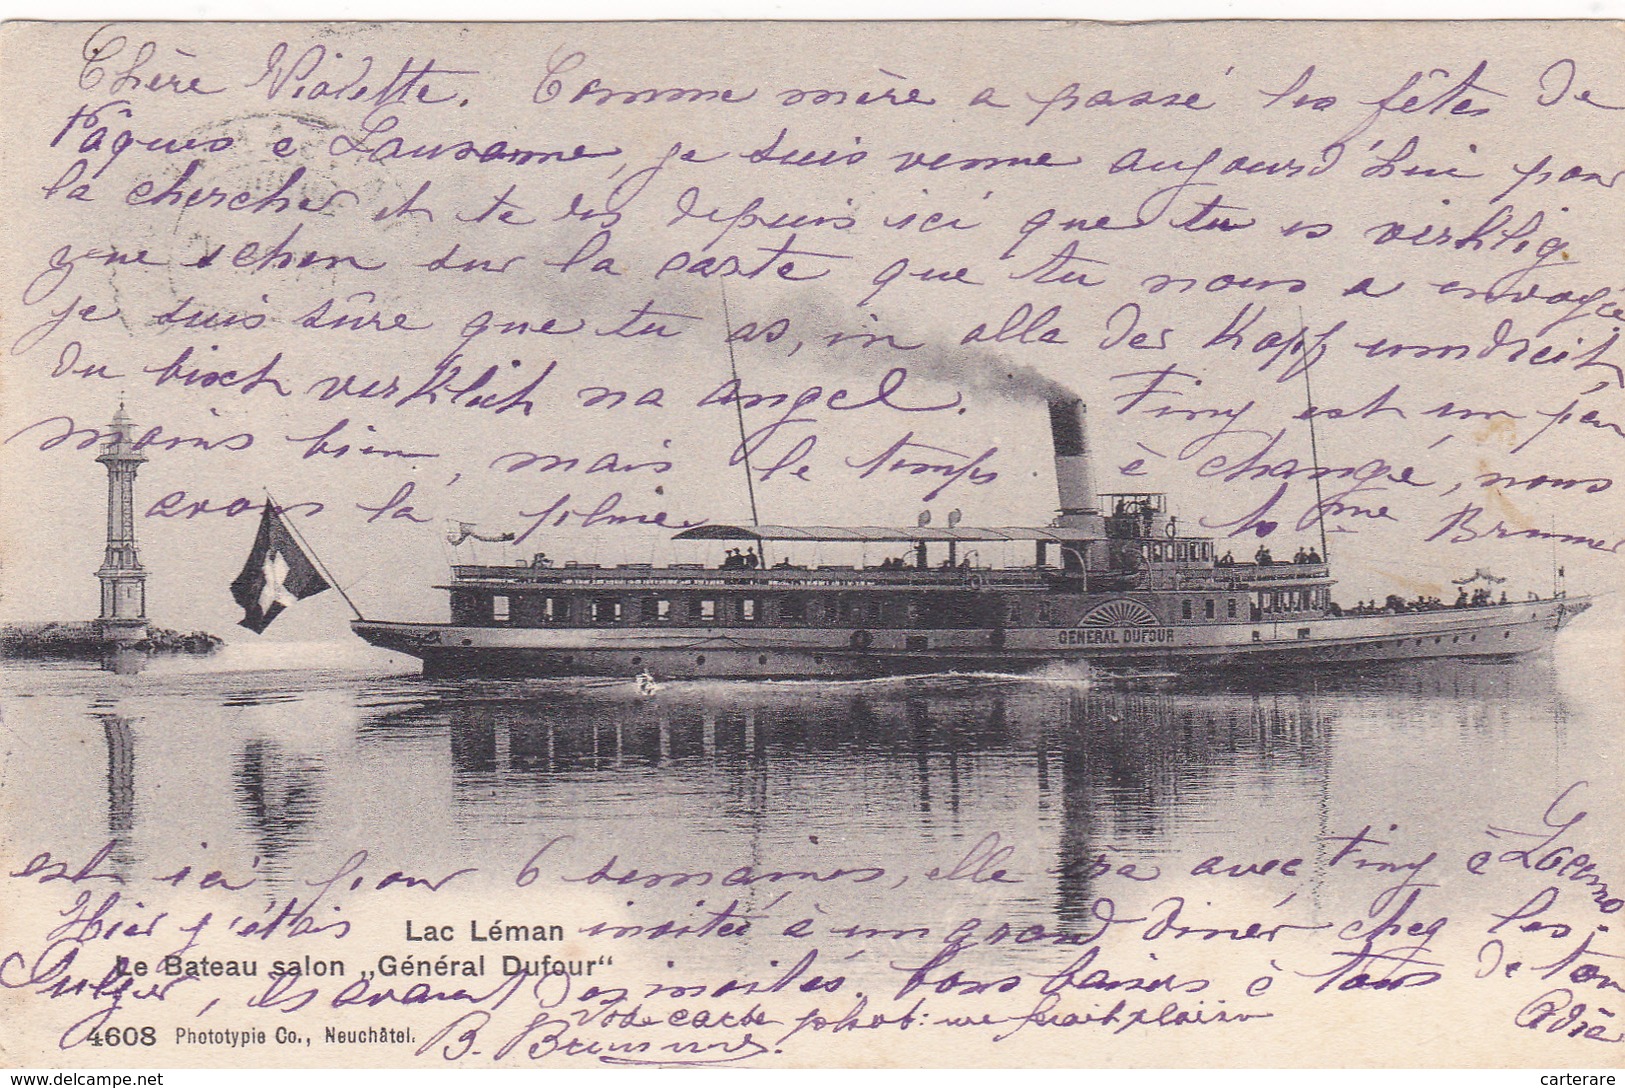 Chère Violette. Comme mère a passé les fêtes de
Pâques e Lausanne, je suis venue aujourd'hui pour
la chercher et te dis depuis ici que tu es virklig
que schon sur la carte que tu nous a envogée
je suis sûre que tu as, in alla der Kopf umdreit
du bisch verklich na angel. Finy est un peu
moins bien, mais le temps è changé, nous
avons la pluie Mme Brunner
GÉNÉRAL DUFOUR
est ici pour 6 semaines, elle ira avec Finy è Locarno
Hier j'étais invitée à un grand dinér cheg les
Sulzer, ils avaient dos invités. bons baisers è tous de ton
Adèa
Lac Léman
Le Bateau salon „Général Dufour“
4608 Phototypie Co., Neuchâtel.
Votre carte phot: me ferait plaisir
B. Brunner.
www.delcampe.net
carterare